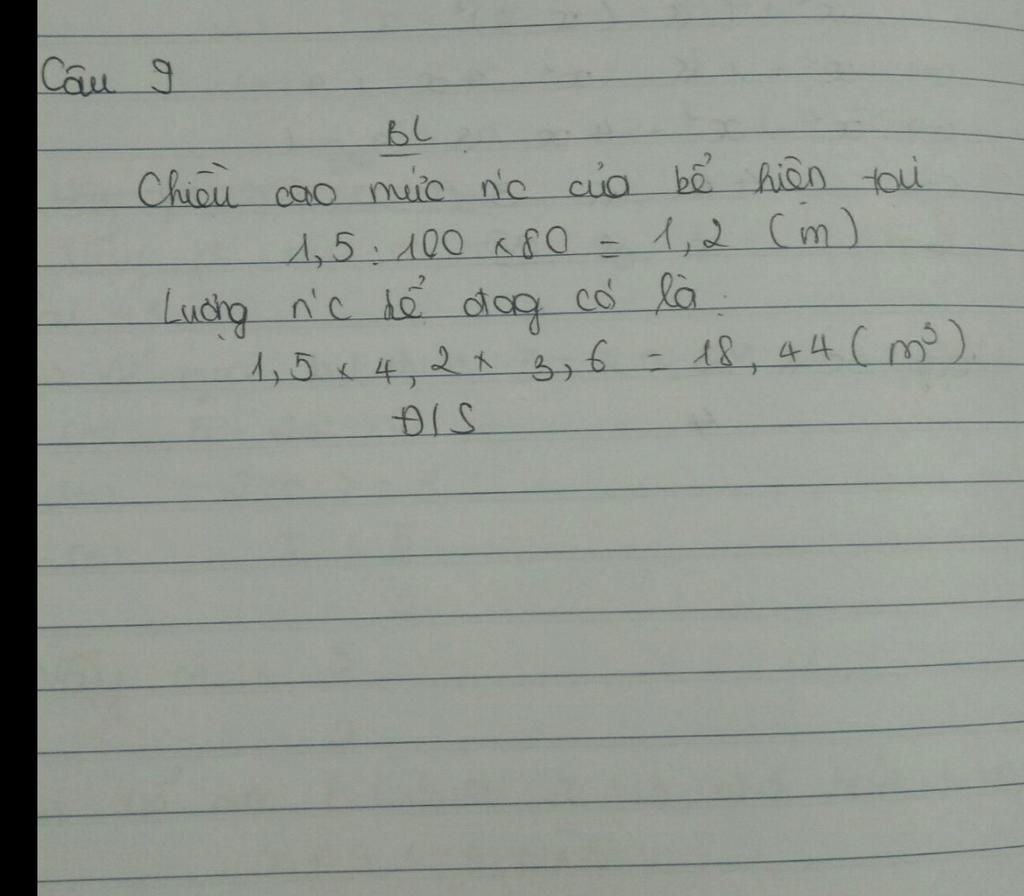 Câu 9
BL
Chiều cao mức n'c của bể hiện tại
1,5 : 100 x 80 = 1,2 (m)
Lượng n'c bể đag có là
1,5 x 4,2 x 3,6 = 18,44 (m³)
Đ/S